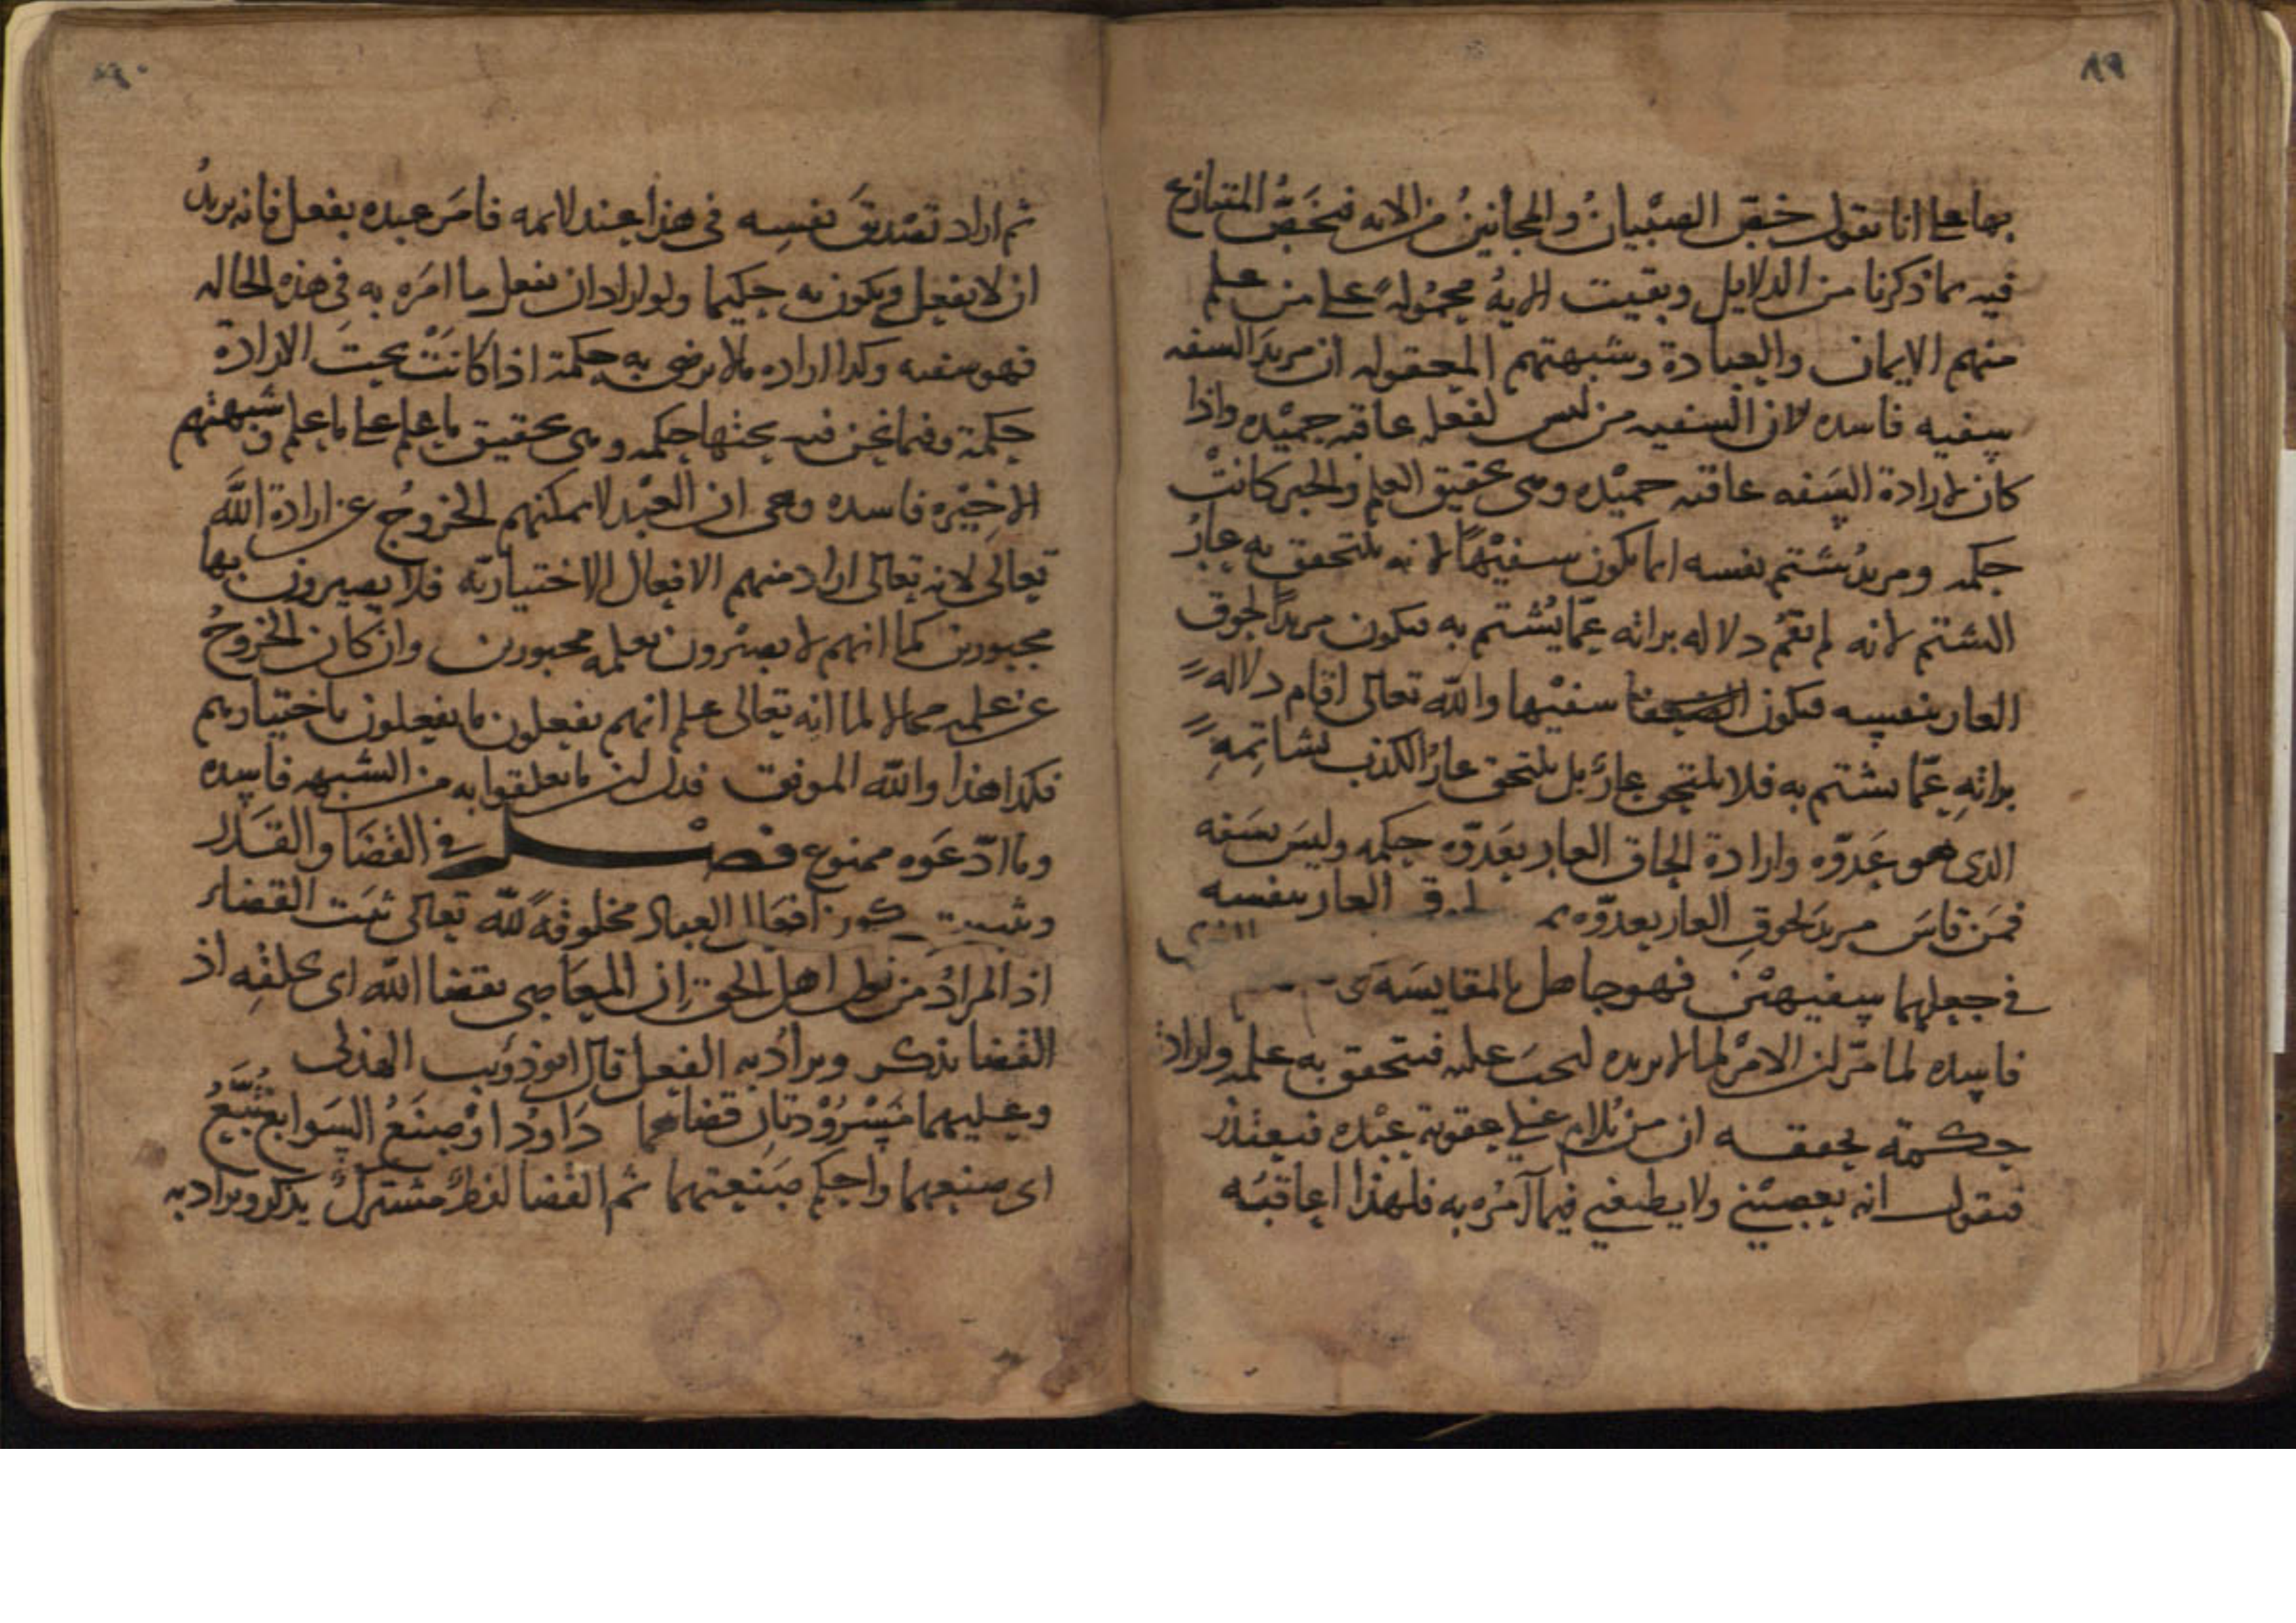 ٨٩
بها على انا نقول خص الصبيان والمجانين من الايه فنخص المتنازع
فيه بما ذكرنا من الدلايل وبقيت الايه محموله على من علم
منهم الايمان والعبادة وشبهتهم المعقوله ان مريد السفه
سفيه فاسده لان السفيه من ليس لفعله عاقبه حميده واذا
كان لارادة السفه عاقبه حميده وهى تحقيق العلم والخبر كانت
حكمه ومريد شتم نفسه انما يكون سفيها لانه يلتحق به عار
الشتم لانه لم تقم دلاله براته عما يشتم به فيكون مريدا لحوق
العار بنفسه فيكون سفيها والله تعالى اقام دلاله
براته عما يشتم به فلا يلتحق عار بل يلتحق عار الكذب بشاتمه
الذى هو عدوه وارادة الحاق العار بعدوه حكمه وليس بسفه
فمن قاس مريد لحوق العار بعدوه العار بنفسه
فى جعلهما سفيهين فهو جاهل بالمقايسه
فاسده لما مر ان الامر لما لا يريده ليحق علمه فيتحقق به علمه واراد
حكمة تحققه ان من يلام على عقوبة عبده فيعتذر
فيقول انه يعصينى ولا يطيعنى فيما آمره به فلهذا اعاقبه
٩٠
ثم اراد تصديق نفسه فى هذا عند لايمه فامر عبده بفعل فانه يريد
ان لا يفعل ويكون به حكيما ولو اراد ان يفعل ما امره به فى هذه الحاله
فهو سفيه وكذا اراده ما لا يرضى به حكمة اذا كانت تحت الارادة
حكمة وفيما نحن فيه تحتها حكمه وهى تحقيق ما علم على ما علم وشبهتهم
الاخيره فاسده وهى ان العبد لا يمكنهم الخروج عن ارادة الله
تعالى لانه تعالى اراد منهم الافعال الاختياريه فلا يصيرون بها
مجبورين كما انهم لا يصيرون بعلمه مجبورين وان كان الخروج
عن علمه محالا لما انه تعالى علم انهم يفعلون ما يفعلون باختيارهم
فكذا هذا والله الموفق فدل ان ما تعلقوا به من الشبهه فاسده
وما ادعوه ممنوع فصل فى القضا والقدر
وثبت كون افعال العباد مخلوقه لله تعالى ثبت القضاء
اذ المراد من قول اهل الحق ان المعاصى بقضا الله اى بخلقه اذ
القضا يذكر ويراد به الفعل قال ابو ذؤيب الهذلى
وعليهما مسرودتان قضاهما داود او صنع السوابغ تبع
اى صنعهما واحكم صنعتهما ثم القضا لفظ مشترك يذكر ويراد به